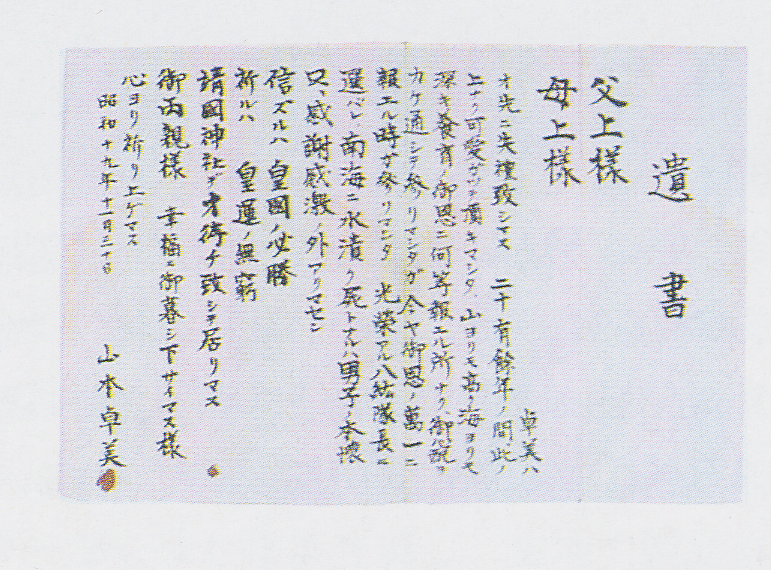 遺書
父上様
母上様
卓美ハ
オ先ニ失禮致シマス 二十有餘年ノ間、此ノ
上ナク可愛ガッテ頂キマシタ、山ヨリモ高ク海ヨリモ
深キ養育ノ御恩ニ何等報エル所ナク、御心配ヲ
カケ通シテ参リマシタガ今ヤ御恩ノ萬一ニ
報エル時ガ参リマシタ 光榮アル八紘隊長ニ
選バレ 南海ニ水漬ク屍トナルハ男子ノ本懐
只々感謝感激ノ外アリマセン
信ズルハ 皇國ノ必勝
祈ルハ 皇運ノ無窮
靖國神社デオ待チ致シテ居リマス
御両親様 幸福ニ御暮シ下サイマス様
心ヨリ祈リ上ゲマス
昭和十九年十一月三十日
山本卓美